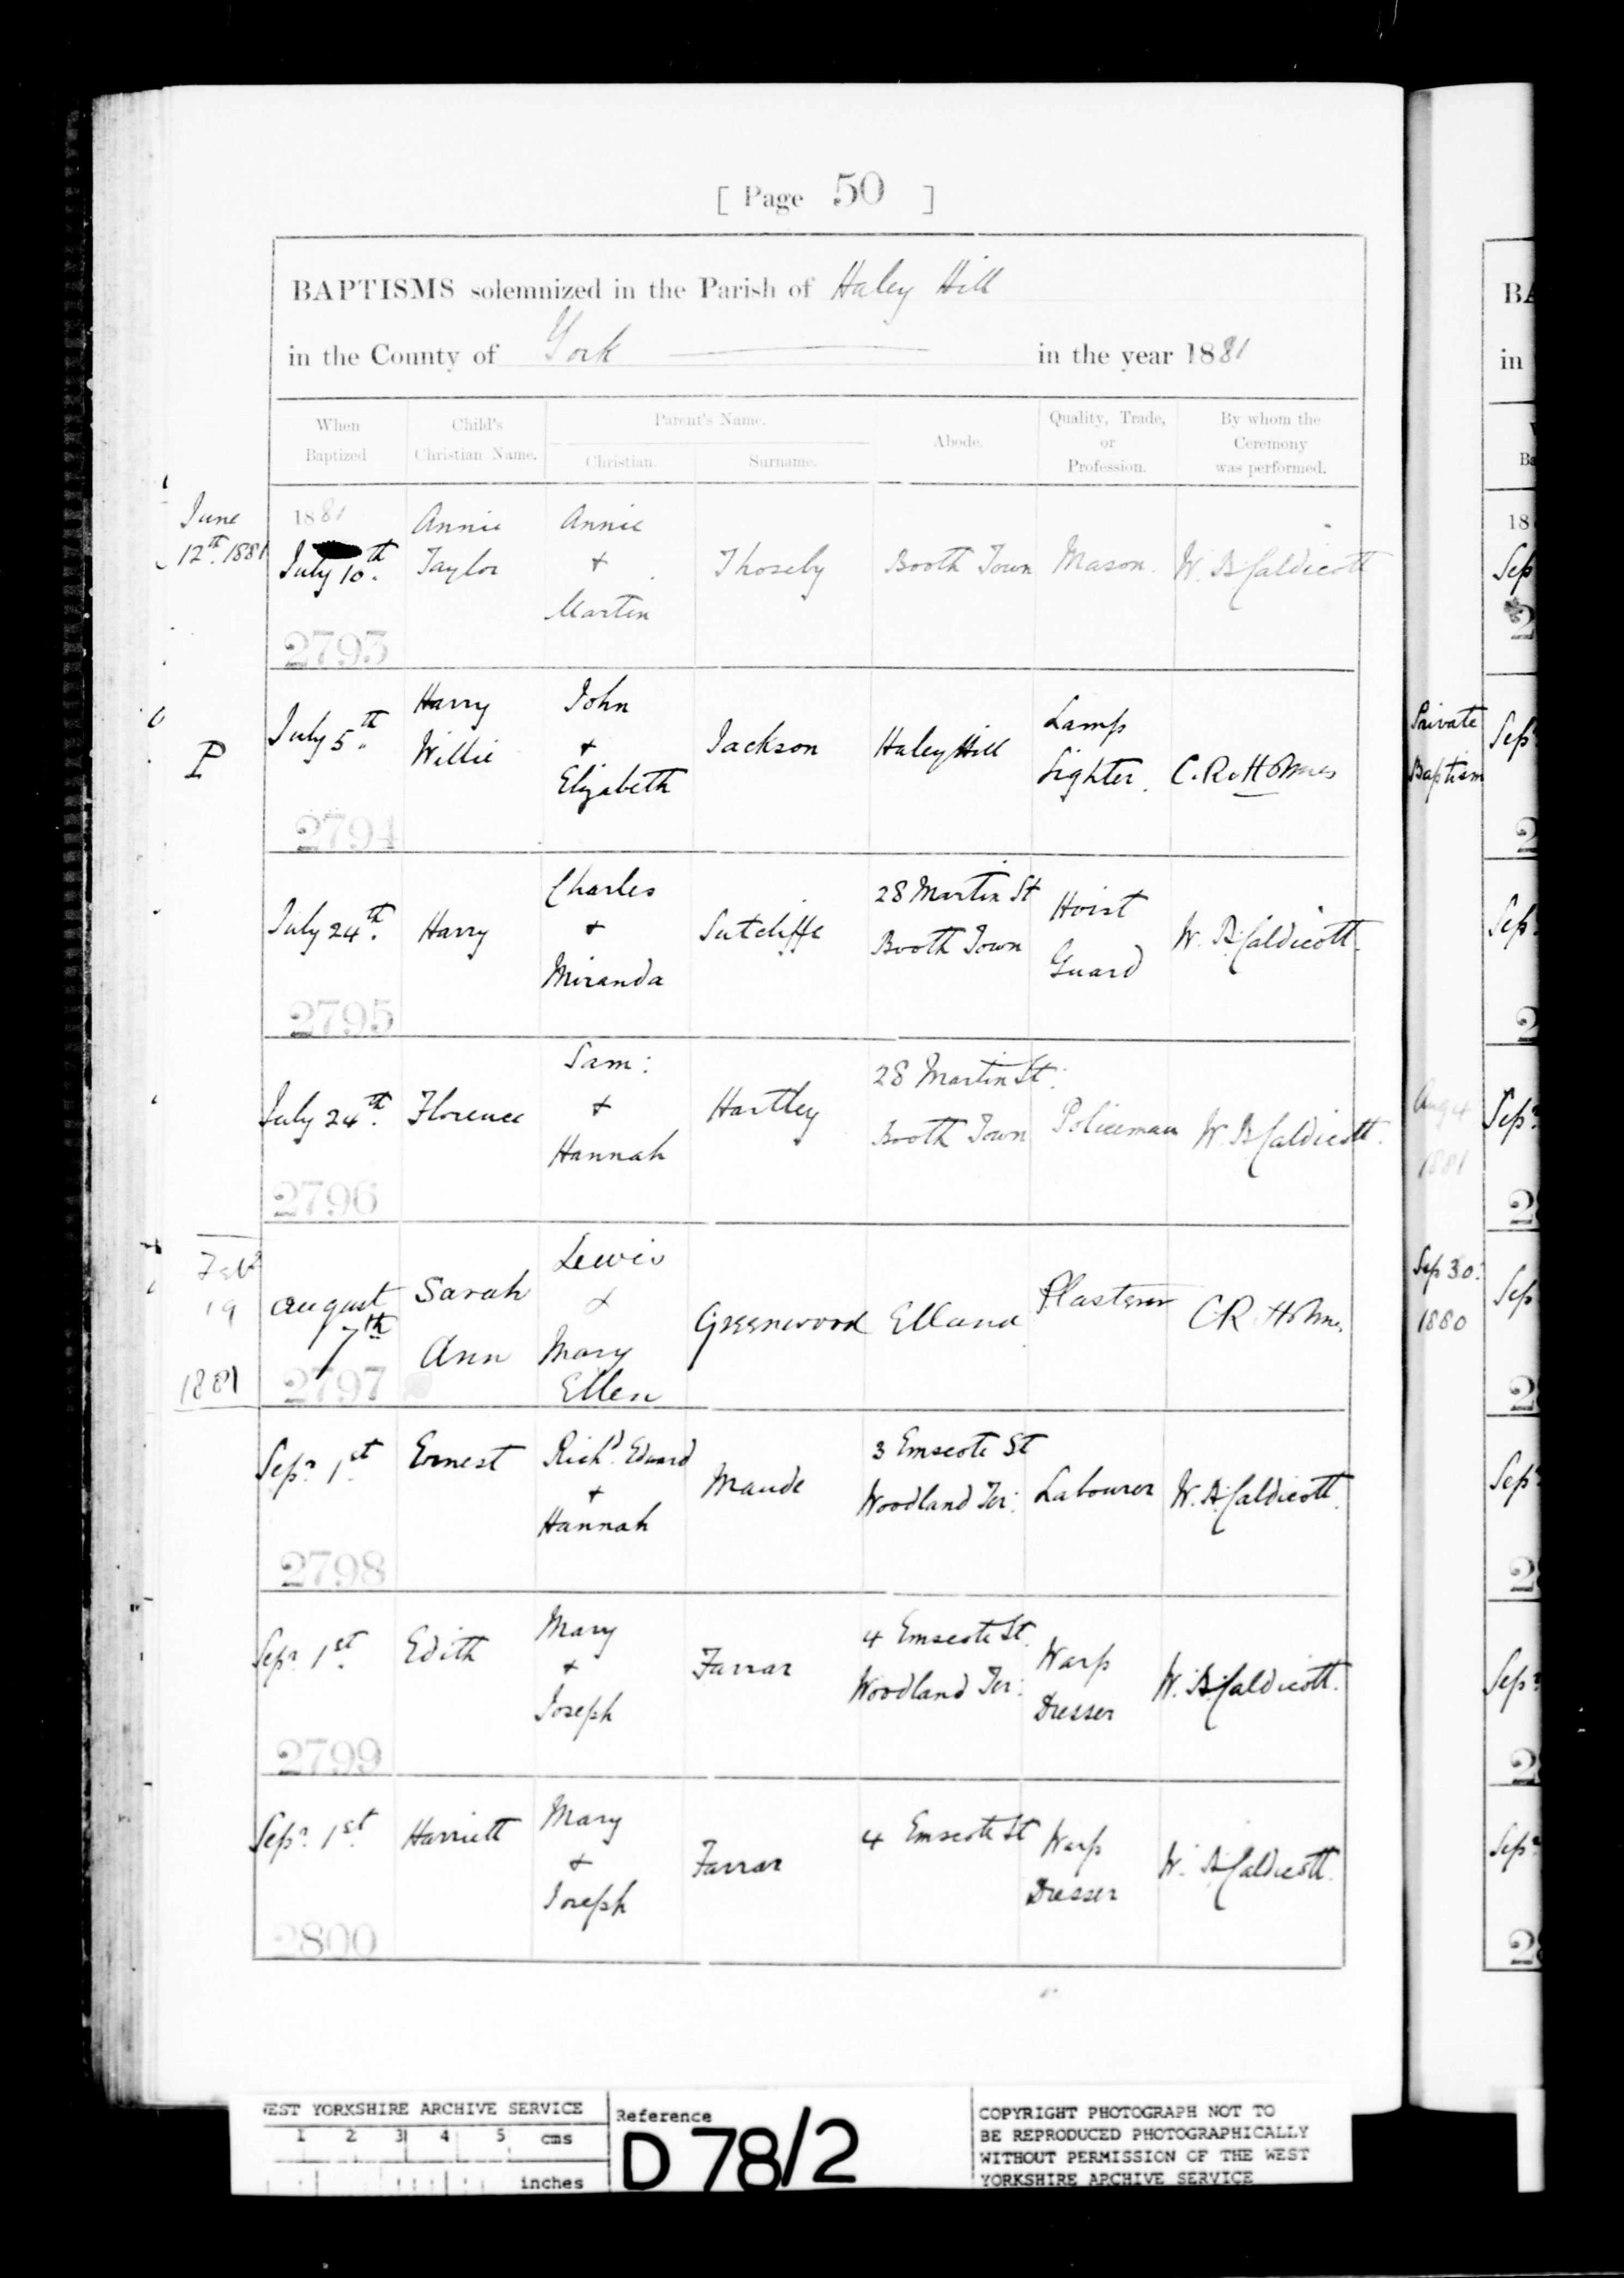 [ Page 50 ]
BAPTISMS solemnized in the Parish of Haley Hill
in the County of York in the year 1881
When Baptized
Child's Christian Name.
Parent's Name.
Christian.
Surname.
Abode.
Quality, Trade, or Profession.
By whom the Ceremony was performed.
June
12th. 1881
1881
July 10th.
2793
Annie
Taylor
Annie
+
Martin
Thoseby
Booth Town
Mason.
W. B. Caldicott
P
July 5th.
2794
Harry
Willie
John
+
Elizabeth
Jackson
Haley Hill
Lamp
Lighter.
C. R. Holmes
July 24th.
2795
Harry
Charles
+
Miranda
Sutcliffe
28 Martin St
Booth Town
Hoist
Guard
W. B. Caldicott.
July 24th.
2796
Florence
Sam:
+
Hannah
Hartley
28 Martin St.
Booth Town
Policeman
W. B. Caldicott.
19
1881
August
7th
2797
Sarah
Ann
Lewis
+
Mary
Ellen
Greenwood
Elland
Plasterer
C R Holmes
Sepr. 1st.
2798
Ernest
Richd. Edward
+
Hannah
Maude
3 Emscote St
Woodland Ter:
Labourer
W. B. Caldicott.
Sepr. 1st.
2799
Edith
Mary
+
Joseph
Farrar
4 Emscote St.
Woodland Ter:
Warp
Dresser
W. B. Caldicott.
Sepr. 1st.
2800
Harriett
Mary
+
Joseph
Farrar
4 Emscote St
Warp
Dresser
W. B. Caldicott.
Private
Baptism
Aug 4
1881
Sep 30:
1880
BA
in
18
Sep
WEST YORKSHIRE ARCHIVE SERVICE
1 2 3 4 5 cms
inches
Reference
D 78/2
COPYRIGHT PHOTOGRAPH NOT TO
BE REPRODUCED PHOTOGRAPHICALLY
WITHOUT PERMISSION OF THE WEST
YORKSHIRE ARCHIVE SERVICE